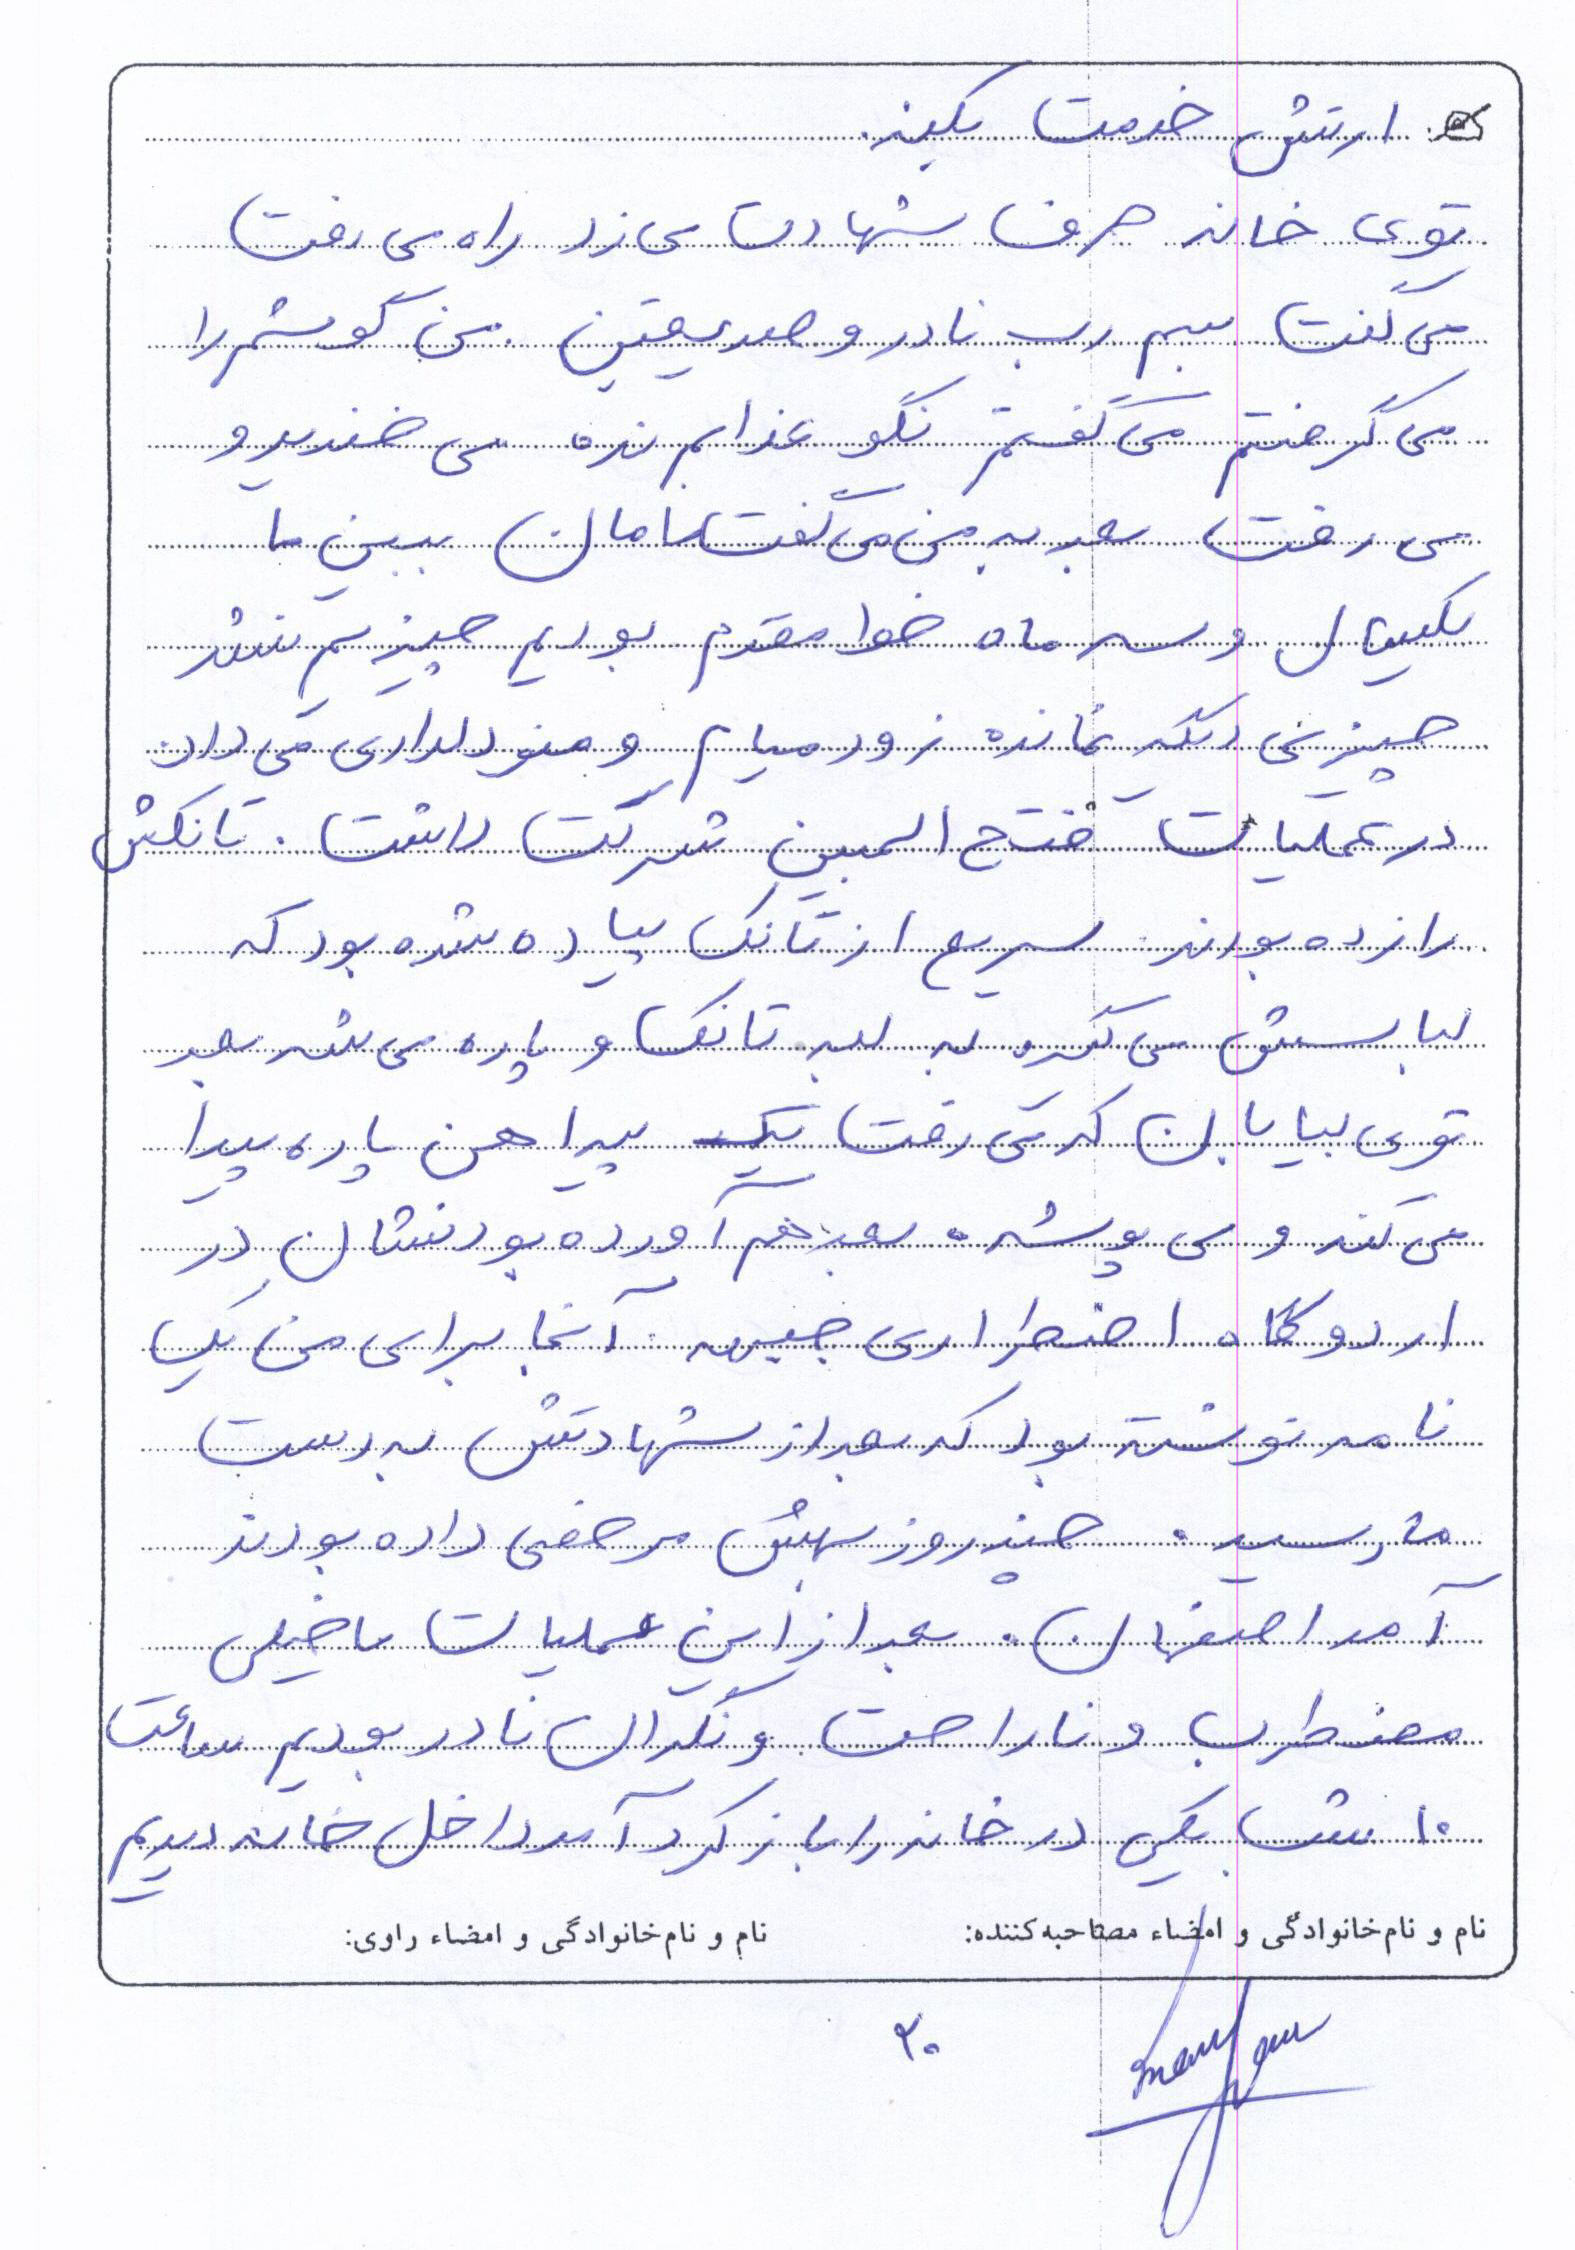 ارتش خدمت بکند.
توی خانه حرف شهادت می زد راه می رفت
می گفت بسم رب نادر و صدیقین. من گوشم را
می گرفتم می گفتم نگو عذابم نده می خندید و
می رفت بعد به من می گفت مامان ببین ما
یکسال و سه ماه خط مقدم بودیم چیزیم نشد
چیزی دیگه نمانده زود میام و منو دلداری می داد.
در عملیات فتح المبین شرکت داشت. تانکش
را زده بودند. سریع از تانک پیاده شده بود که
لباسش می گیره به لبه تانک و پاره می شه بعد
توی بیابان که می رفت یک پیراهن پاره پیدا
می کند و می پوشه. بعد هم آورده بودنشان در
اردوگاه اضطراری جبهه. آنجا برای من یک
نامه نوشته بود که بعد از شهادتش به دست
ما رسید. چند روز بهش مرخصی داده بودند
آمد اصفهان. بعد از این عملیات ما خیلی
مضطرب و ناراحت و نگران نادر بودیم ساعت
۱۰ شب یکی در خانه را باز کرد آمد داخل خانه دیدیم
نام و نام‌خانوادگی و امضاء مصاحبه‌کننده: نام و نام‌خانوادگی و امضاء راوی:
۲۰